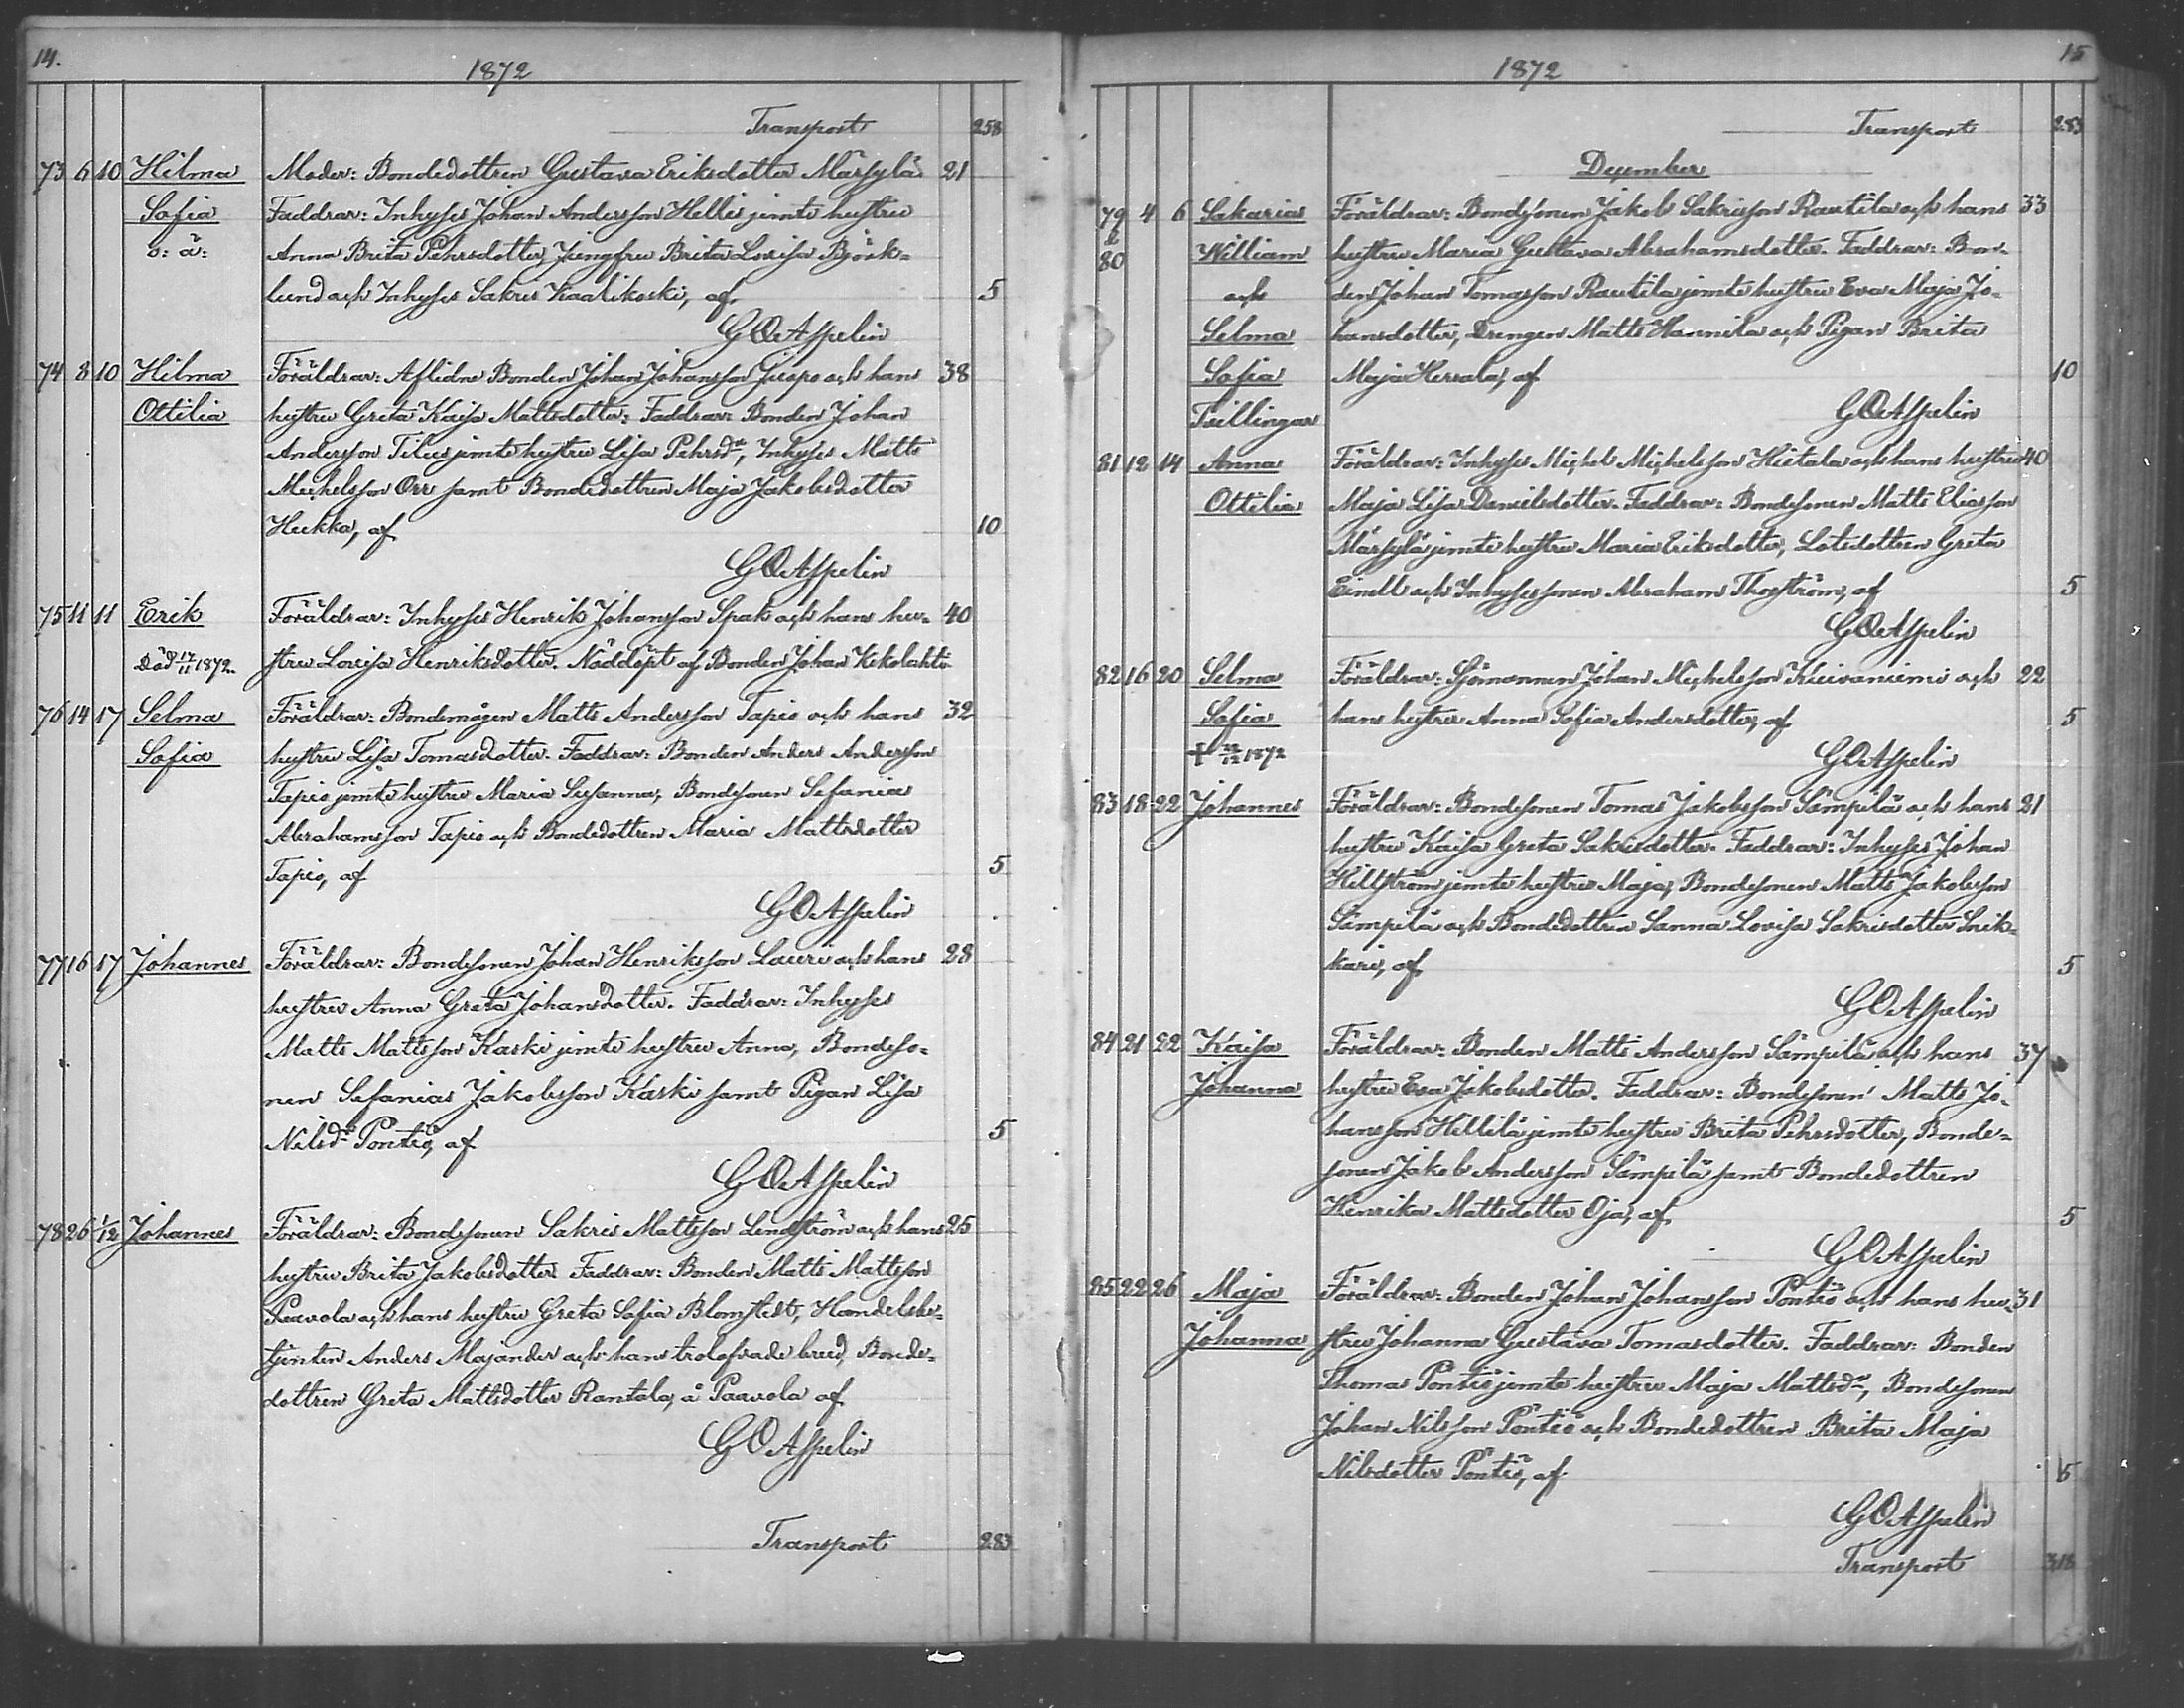 14.
1872
Transport 258
73 6 10 Hilma Moder: Bondedottren Gustava Eriksdotter Märsylä 21
Sofia Faddrar: Inhyses Johan Andersson Hellis jemte hustru
o: ä: Anna Brita Pehrsdotter, Jungfru Brita Lovisa Björk=
lund och Inhyses Sakris Kaalikoski, af 5
G O Aspelin
74 8 10 Hilma Föräldrar: Aflidne Bonden Johan Johansson Juopo och hans 38
Ottilia hustru Greta Kajsa Mattsdotter: Faddrar: Bonden Johan
Andersson Tilus jemte hustru Lisa Pehrsdr, Inhyses Matts
Michelsson Orr samt Bondedottren Maja Jakobsdotter
Heikka, af 10
G O Aspelin
75 11 11 Erik Föräldrar: Inhyses Henrik Johansson Spak och hans hu= 40
Död 17/11 1872. stru Lovisa Henriksdotter. Nöddöpt af Bonden Johan Kekolahti
76 14 17 Selma Föräldrar: Bondemågen Matts Andersson Tapio och hans 32
Sofia hustru Lisa Tomasdotter. Faddrar: Bonden Anders Andersson
Tapio jemte hustru Maria Susanna, Bondesonen Sefanias
Abrahamsson Tapio och Bondedottren Maria Mattsdotter
Tapio, af 5
G O Aspelin
77 16 17 Johannes Föräldrar: Bondesonen Johan Henriksson Lauri och hans 28
hustru Anna Greta Johansdotter. Faddrar: Inhyses
Matts Mattsson Kaski jemte hustru Anna, Bondeso=
nen Sefanias Jakobsson Kaski samt Pigan Lisa
Nilsdr Pöntiö, af 5
G O Aspelin
78 26 1/12 Johannes Föräldrar: Bondesonen Sakris Mattsson Lindström och hans 25
hustru Brita Jakobsdotter. Faddrar: Bonden Matts Mattsson
Paavola och hans hustru Greta Sofia Blomstedt, Handelsbe=
tjenten Anders Majander och hans trolofvade brud, Bonde=
dottren Greta Mattsdotter Rantala, å Paavola af
G O Aspelin
Transport 283
15
1872
Transport 283
December
79 4 6 Sakarias Föräldrar: Bondesonen Jakob Sakrisson Rautila och hans 33
& 80 William hustru Maria Gustava Abrahamsdotter. Faddrar: Bon=
och den Johan Tomasson Rautila jemte hustru Eva Maja Jo=
Selma hansdotter, Drengen Matts Hannila och Pigan Brita
Sofia Maja Herrala, af 10
Tvillingar G O Aspelin
81 12 14 Anna Föräldrar: Inhyses Michel Michelsson Hietala och hans hustru 40
Ottilia Maja Lisa Danielsdotter. Faddrar: Bondesonen Matts Eliasson
Märsylä jemte hustru Maria Eriksdotter, Lotsdottren Greta
Einell och Inhysessonen Abraham Thoström, af 5
G O Aspelin
82 16 20 Selma Föräldrar: Sjömannen Johan Michelsson Kuivaniemi och 22
Sofia hans hustru Anna Sofia Andersdotter, af 5
† 22/12 1872 G O Aspelin
83 18 22 Johannes Föräldrar: Bondesonen Tomas Jakobsson Sämpilä och hans 21
hustru Kaisa Greta Sakrisdotter. Faddrar: Inhyses Johan
Hillström jemte hustru Maja, Bondesonen Matts Jakobsson
Sämpilä och Bondedottren Sanna Lovisa Sakrisdotter Snik=
kari, af 5
G O Aspelin
84 21 22 Kaisa Föräldrar: Bonden Matts Andersson Sämpilä och hans 37
Johanna hustru Eva Jakobsdotter. Faddrar: Bondesonen Matts Jo=
hansson Hillilä jemte hustru Brita Pehrsdotter, Bonde=
sonen Jakob Andersson Sämpilä samt Bondedottren
Henrika Mattsdotter Oja, af 5
G O Aspelin
85 22 26 Maja Föräldrar: Bonden Johan Johansson Pöntiö och hans hu= 31
Johanna stru Johanna Gustava Tomasdotter. Faddrar: Bonden
Thomas Pöntiö jemte hustru Maja Mattsdr, Bondesonen
Johan Nilsson Pöntiö och Bondedottren Brita Maja
Nilsdotter Pöntiö, af 5
G O Aspelin
Transport 318